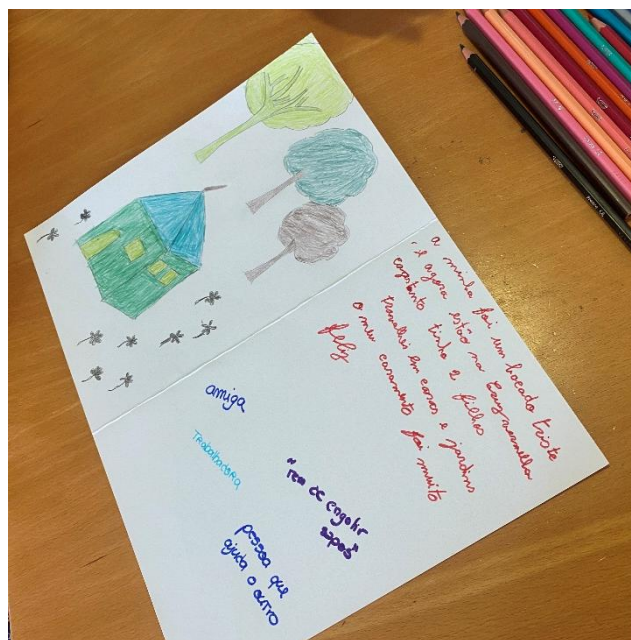 a minha foi um bocado triste
e agora estão na Cruz vermelha
tinha 2 filhos
trabalhei em casas e jardins
o meu casamento foi muito
feliz
amiga
TRABALHADORA
"Tem de engolir
sapos"
pessoa que
ajuda o outro